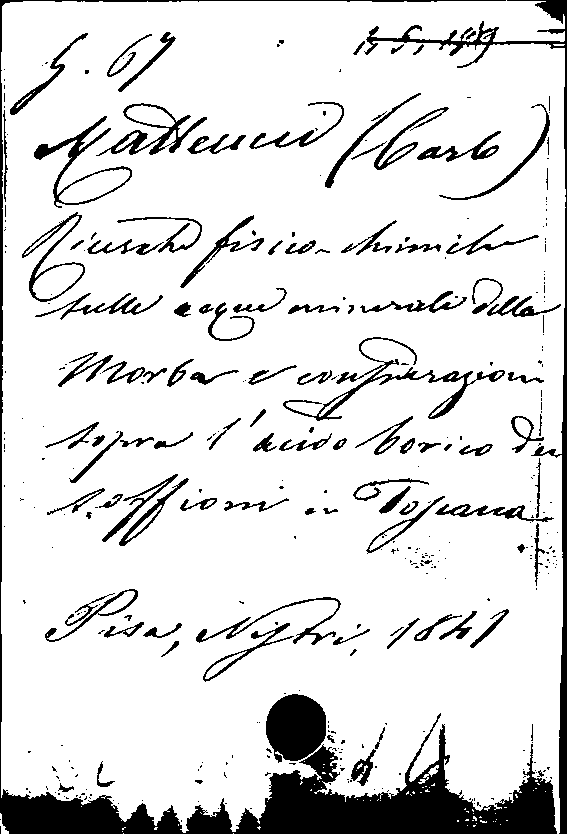 G. 67
Matteucci (Carlo)
Ricerche fisico-chimiche
sulle acque minerali della
Morba e considerazioni
sopra l'acido borico dei
soffioni in Toscana
Pisa, Nistri, 1841